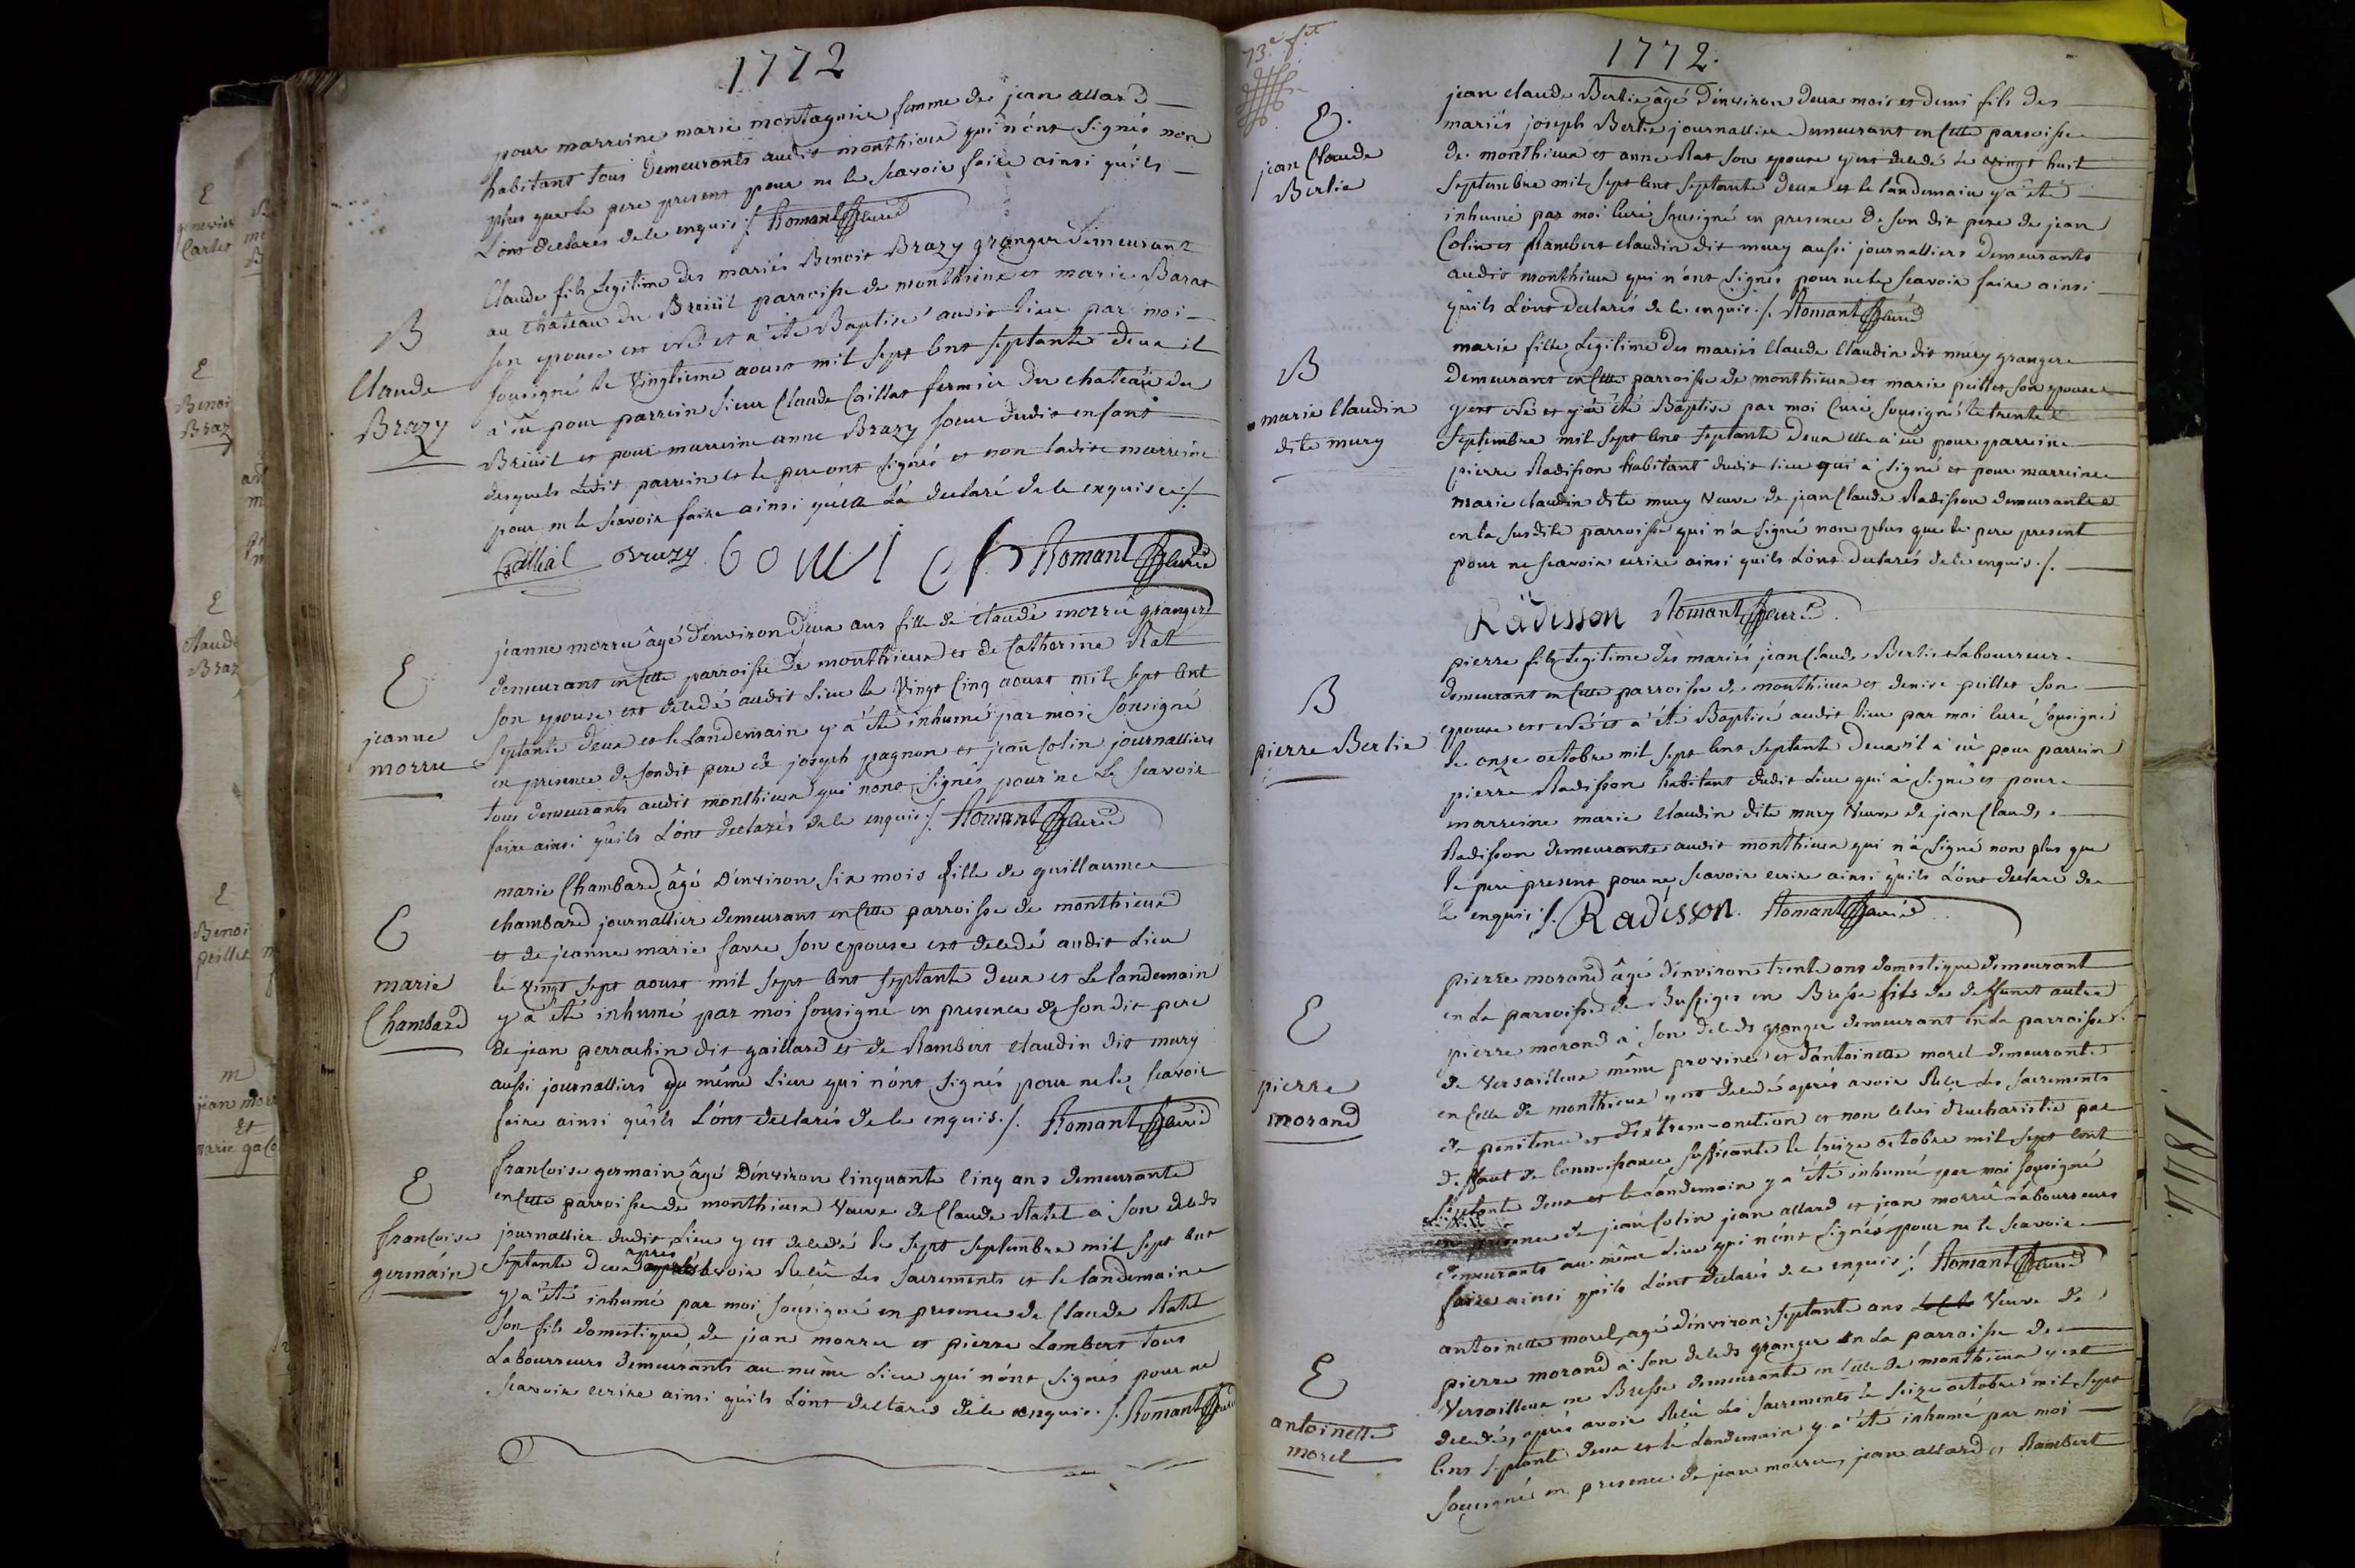 1772
pour marreine marie montagnier femme de jean allard
habitant tous demeurants audit monthieux qui n'ont signés non
plus que le pere present pour ne le scavoir faire ainsi qu'ils
l'ont declarés de le enquis ./. Romant curé
B
Claude
Brazy
Claude fils legitime des mariés Benoit Brazy granger demeurant
au chateau du Breüil parroisse de monthieux et marie Barat
son epouse est né et a été Baptisé audit lieu par moi
sousigné le vingtieme aoust mil sept cent septante deux il
a eû pour parrein sieur Claude Caillat fermier du chateau du
Breüil et pour marreine anne Brazy soeur dudit enfant
desquels ledit parrein et le pere ont signés et non ladite marreine
pour ne le scavoir faire ainsi qu'elle l'a declaré de le enquise ./.
Calliat Brazy Romant curé
E
jeanne
morru
jeanne morru âgé d'environ deux ans fille de claude morru granger
demeurant en cette parroisse de monthieux et de Catherine Rat
son epouse est decedé audit lieu le vingt cinq aoust mil sept cent
septante deux et le landemain y a été inhumé par moi sousigné
en presence de sondit pere de joseph pagnon et jean Colin journalliers
tous demeurants audit monthieux qui nont signés pour ne le scavoir
faire ainsi qu'ils l'ont declarés de le enquis ./. Romant curé
E
marie
Chambard
marie Chambard âgé d'environ six mois fille de guillaume
chambard journallier demeurant en cette parroisse de monthieux
et de jeanne marie favre son epouse est decedé audit lieu
le vingt sept aoust mil sept cent septante deux et le landemain
y a été inhumé par moi sousigné en presence de son dit pere
de jean perrachin dit gaillard et de Rambert claudin dit mury
aussi journalliers du même lieu qui n'ont signés pour ne le scavoir
faire ainsi qu'ils l'ont declarés de le enquis ./. Romant curé
E
francoise
germain
francoise germain âgé d'environ cinquante cinq ans demeurante
en cette parroisse de monthieux veuve de Claude Ratel a son deceds
journallier dudit lieu y est decedé le sept septembre mil sept cent
septante deux après avoir Recû les sacrements et le landemain
y a été inhumé par moi sousigné en presence de Claude Ratel
son fils domestique de jean morru et pierre Lambert tous
Labourreurs demeurants au même lieu qui n'ont signés pour ne
scavoir ecrire ainsi qu'ils l'ont declarés de le enquis ./. Romant curé
73e ft
1772.
E.
jean Claude
Berlie
jean claude Berlie âgé d'environ deux mois et demi fils des
mariés joseph Berlie journallier demeurant en cette parroisse
de monthieux et anne Rat son epouse y est decedé le vingt huit
septembre mil sept cent septante deux et le landemain y a été
inhumé par moi curé sousigné en presence de son dit pere de jean
Colin et Rambert claudin dit mury aussi journalliers demeurants
audit monthieux qui n'ont signés pour ne le scavoir faire ainsi
qu'ils l'ont declarés de le enquis ./. Romant curé
B
marie claudin
dite mury
marie fille legitime des mariés claude claudin dit mury granger
demeurant en cette parroisse de monthieux et marie peillet son epouse
y est né et y a été Baptisé par moi curé sousigné le trente
septembre mil sept cent septante deux elle a eû pour parrein
pierre Radisson habitant dudit lieu qui a signé et pour marreine
marie claudin dite mury veuve de jean Claude Radisson demeurante
en la susdite parroisse qui n'a signé non plus que le pere present
pour ne scavoir ecrire ainsi quils l'ont declarés de le enquis ./.
Radisson Romant curé
B
pierre Berlie
pierre fils legitime des mariés jean Claude Berlie Labourreur
demeurant en cette parroisse de monthieux et denise peillet son
epouse est né et a été Baptisé audit lieu par moi curé sousigné
le onze octobre mil sept cent septante deux il a eû pour parrein
pierre Radisson habitant dudit lieu qui a signé et pour
marreine marie claudin dite mury veuve de jean Claude
Radisson demeurante audit monthieux qui n'a signé non plus que
le pere present pour ne scavoir ecrire ainsi qu'ils l'ont declaré de
le enquis ./. Radisson. Romant curé
E
pierre
morand
pierre morand âgé d'environ trente ans domestique demeurant
en la parroisse de Bussiges en Bresse fils de deffunct autre
pierre morand a son deceds granger demeurant en la parroisse
de Versailleux même province et d'antoinette morel demeurante
en celle de monthieux y est decedé après avoir Recu les sacrements
de penitence et d'extrem-onction et non celui d'eucharistie par
deffaut de connoissance suffisante le treize octobre mil sept cent
septante deux et le landemain y a été inhumé par moi sousigné
en presence de jean Colin jean allard et jean morru Labourreurs
demeurants au même lieu qui n'ont signés pour ne le scavoir
faire ainsi qu'ils l'ont declarés de le enquis ./. Romant curé
E
antoinette
morel
antoinette morel agé d'environ septante ans veuve de
pierre morand a son deceds granger en la parroisse de
Versailleux en Bresse demeurante en celle de monthieux y est
decedé, après avoir Recû les sacrements le seize octobre mil sept
cent septante deux et le landemain y a été inhumé par moi
sousigné en presence de jean morru, jean allard et Rambert
E
genevieve
Carlet
E
Benoi
Braz
E
claude
Braz
E
Benoi
peillet
m
jean morr
et
marie gaco
1844